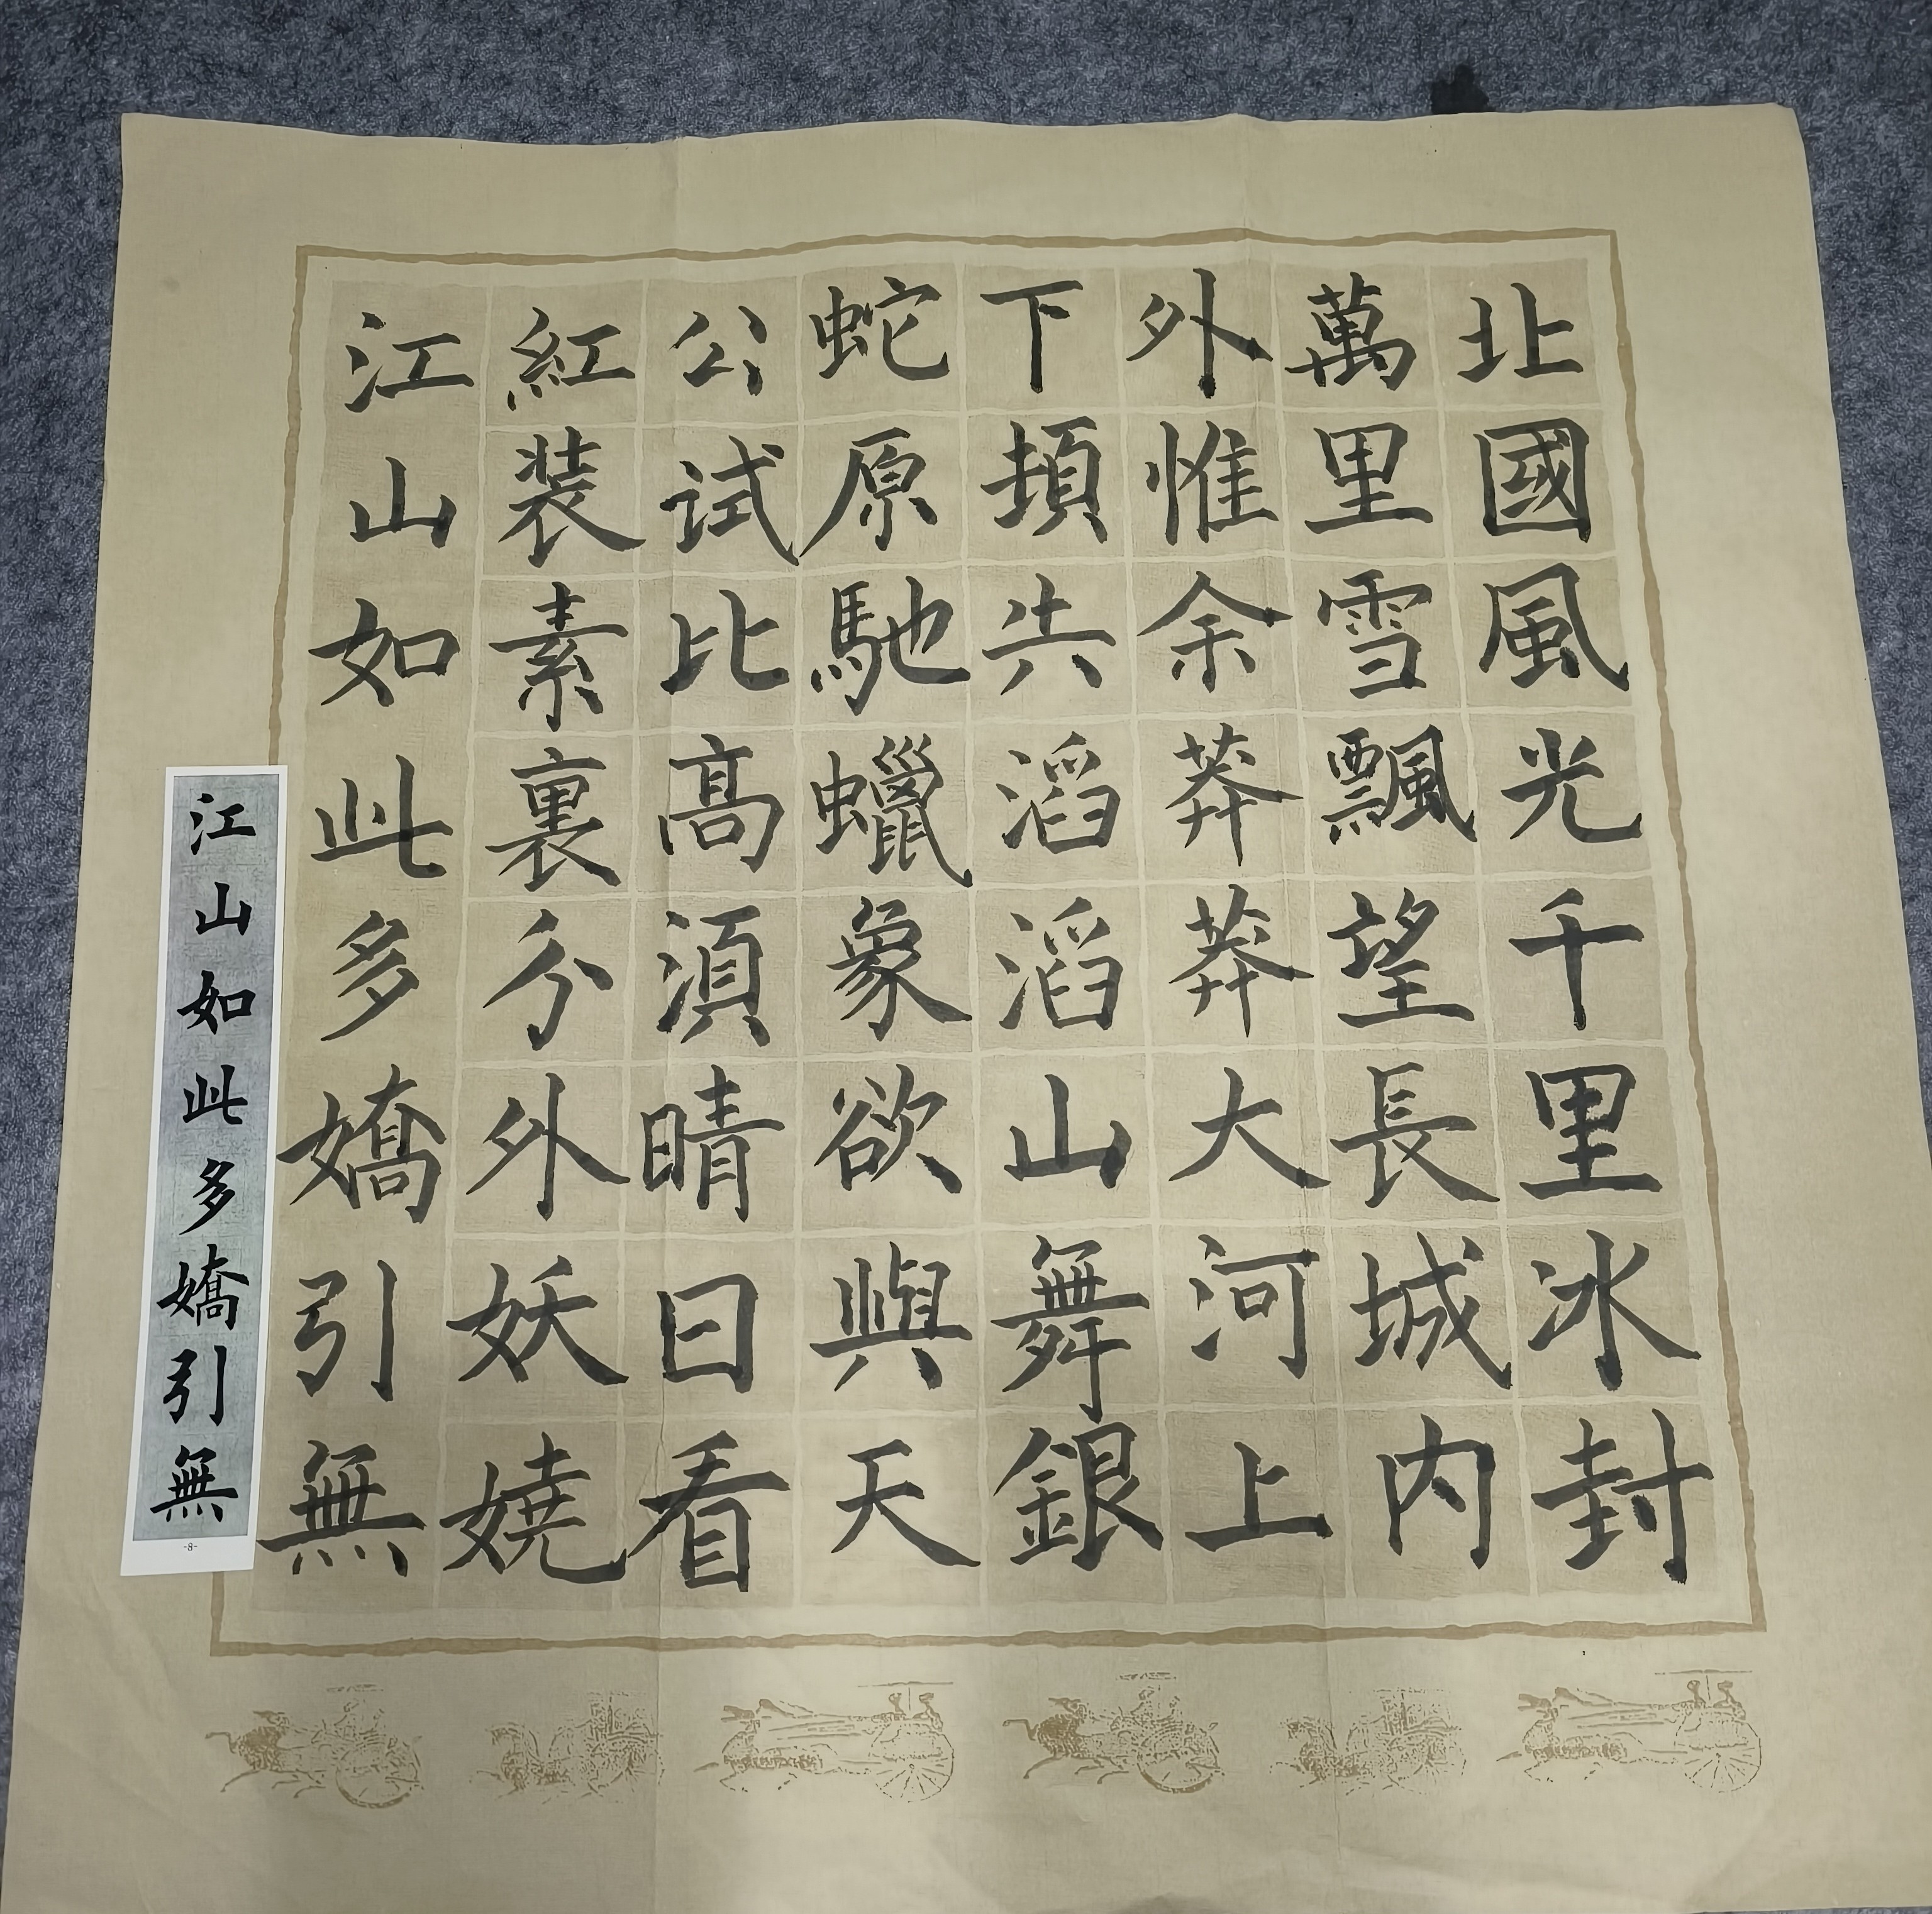 北國風光千里冰封
萬里雪飄望長城内
外惟余莽莽大河上
下頓失滔滔山舞銀
蛇原馳蠟象欲與天
公试比髙湏晴日看
紅装素裹分外妖嬈
江山如此多嬌引無
江山如此多嬌引無
-8-